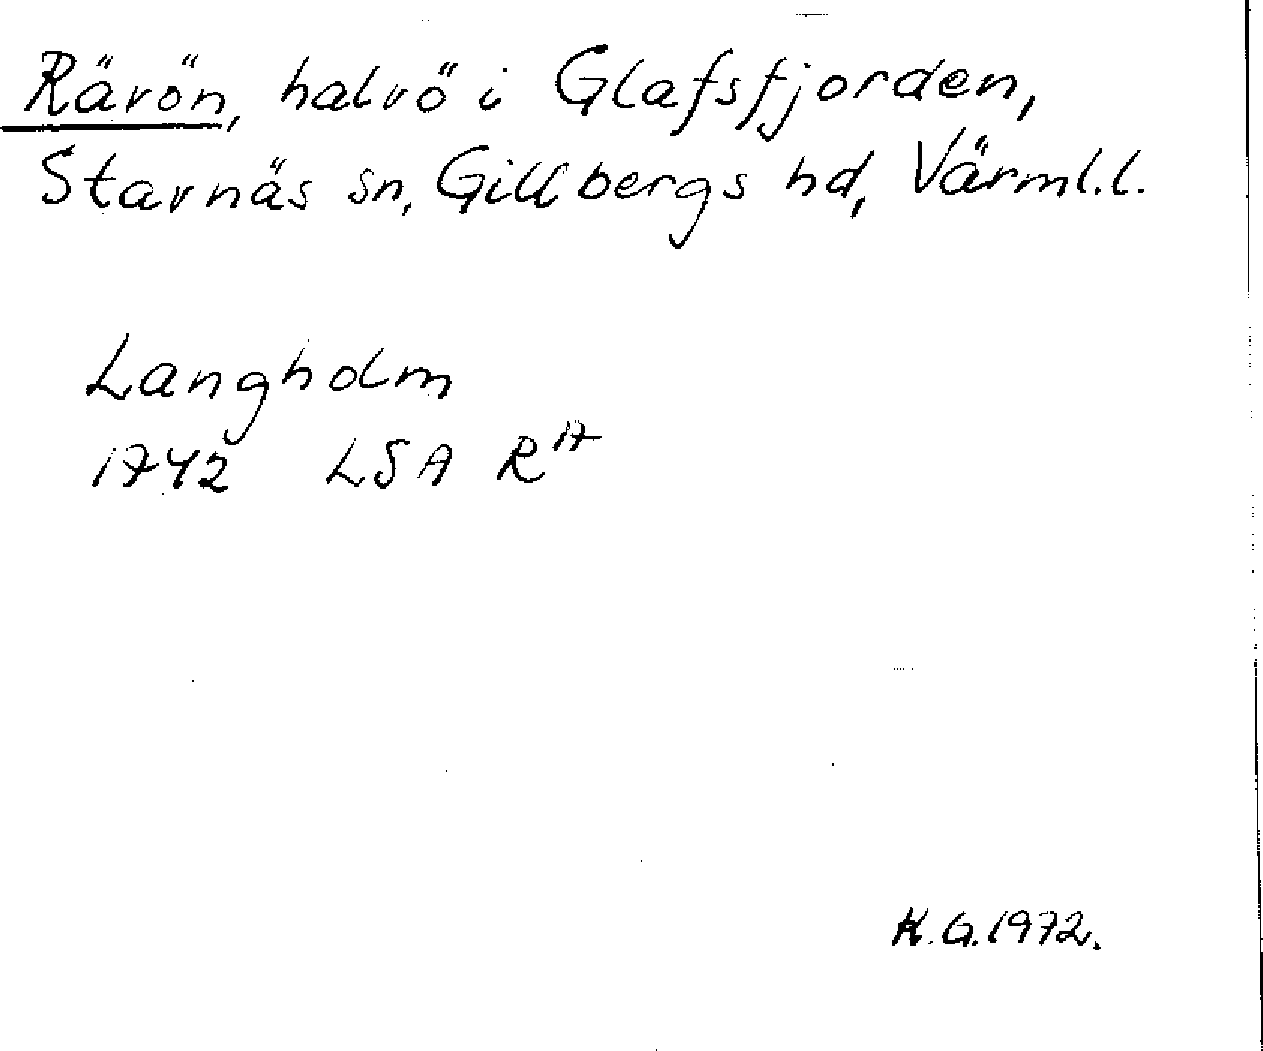 Rävön, halvö i Glafsfjorden,
Stavnäs sn, Gillbergs hd, Värml.l.
Langholm
1742 LSA R 17
K.G. 1972.